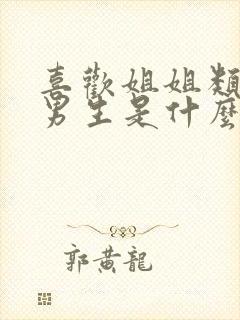 喜歡姐姐類
男生是什麼
郭黃龍